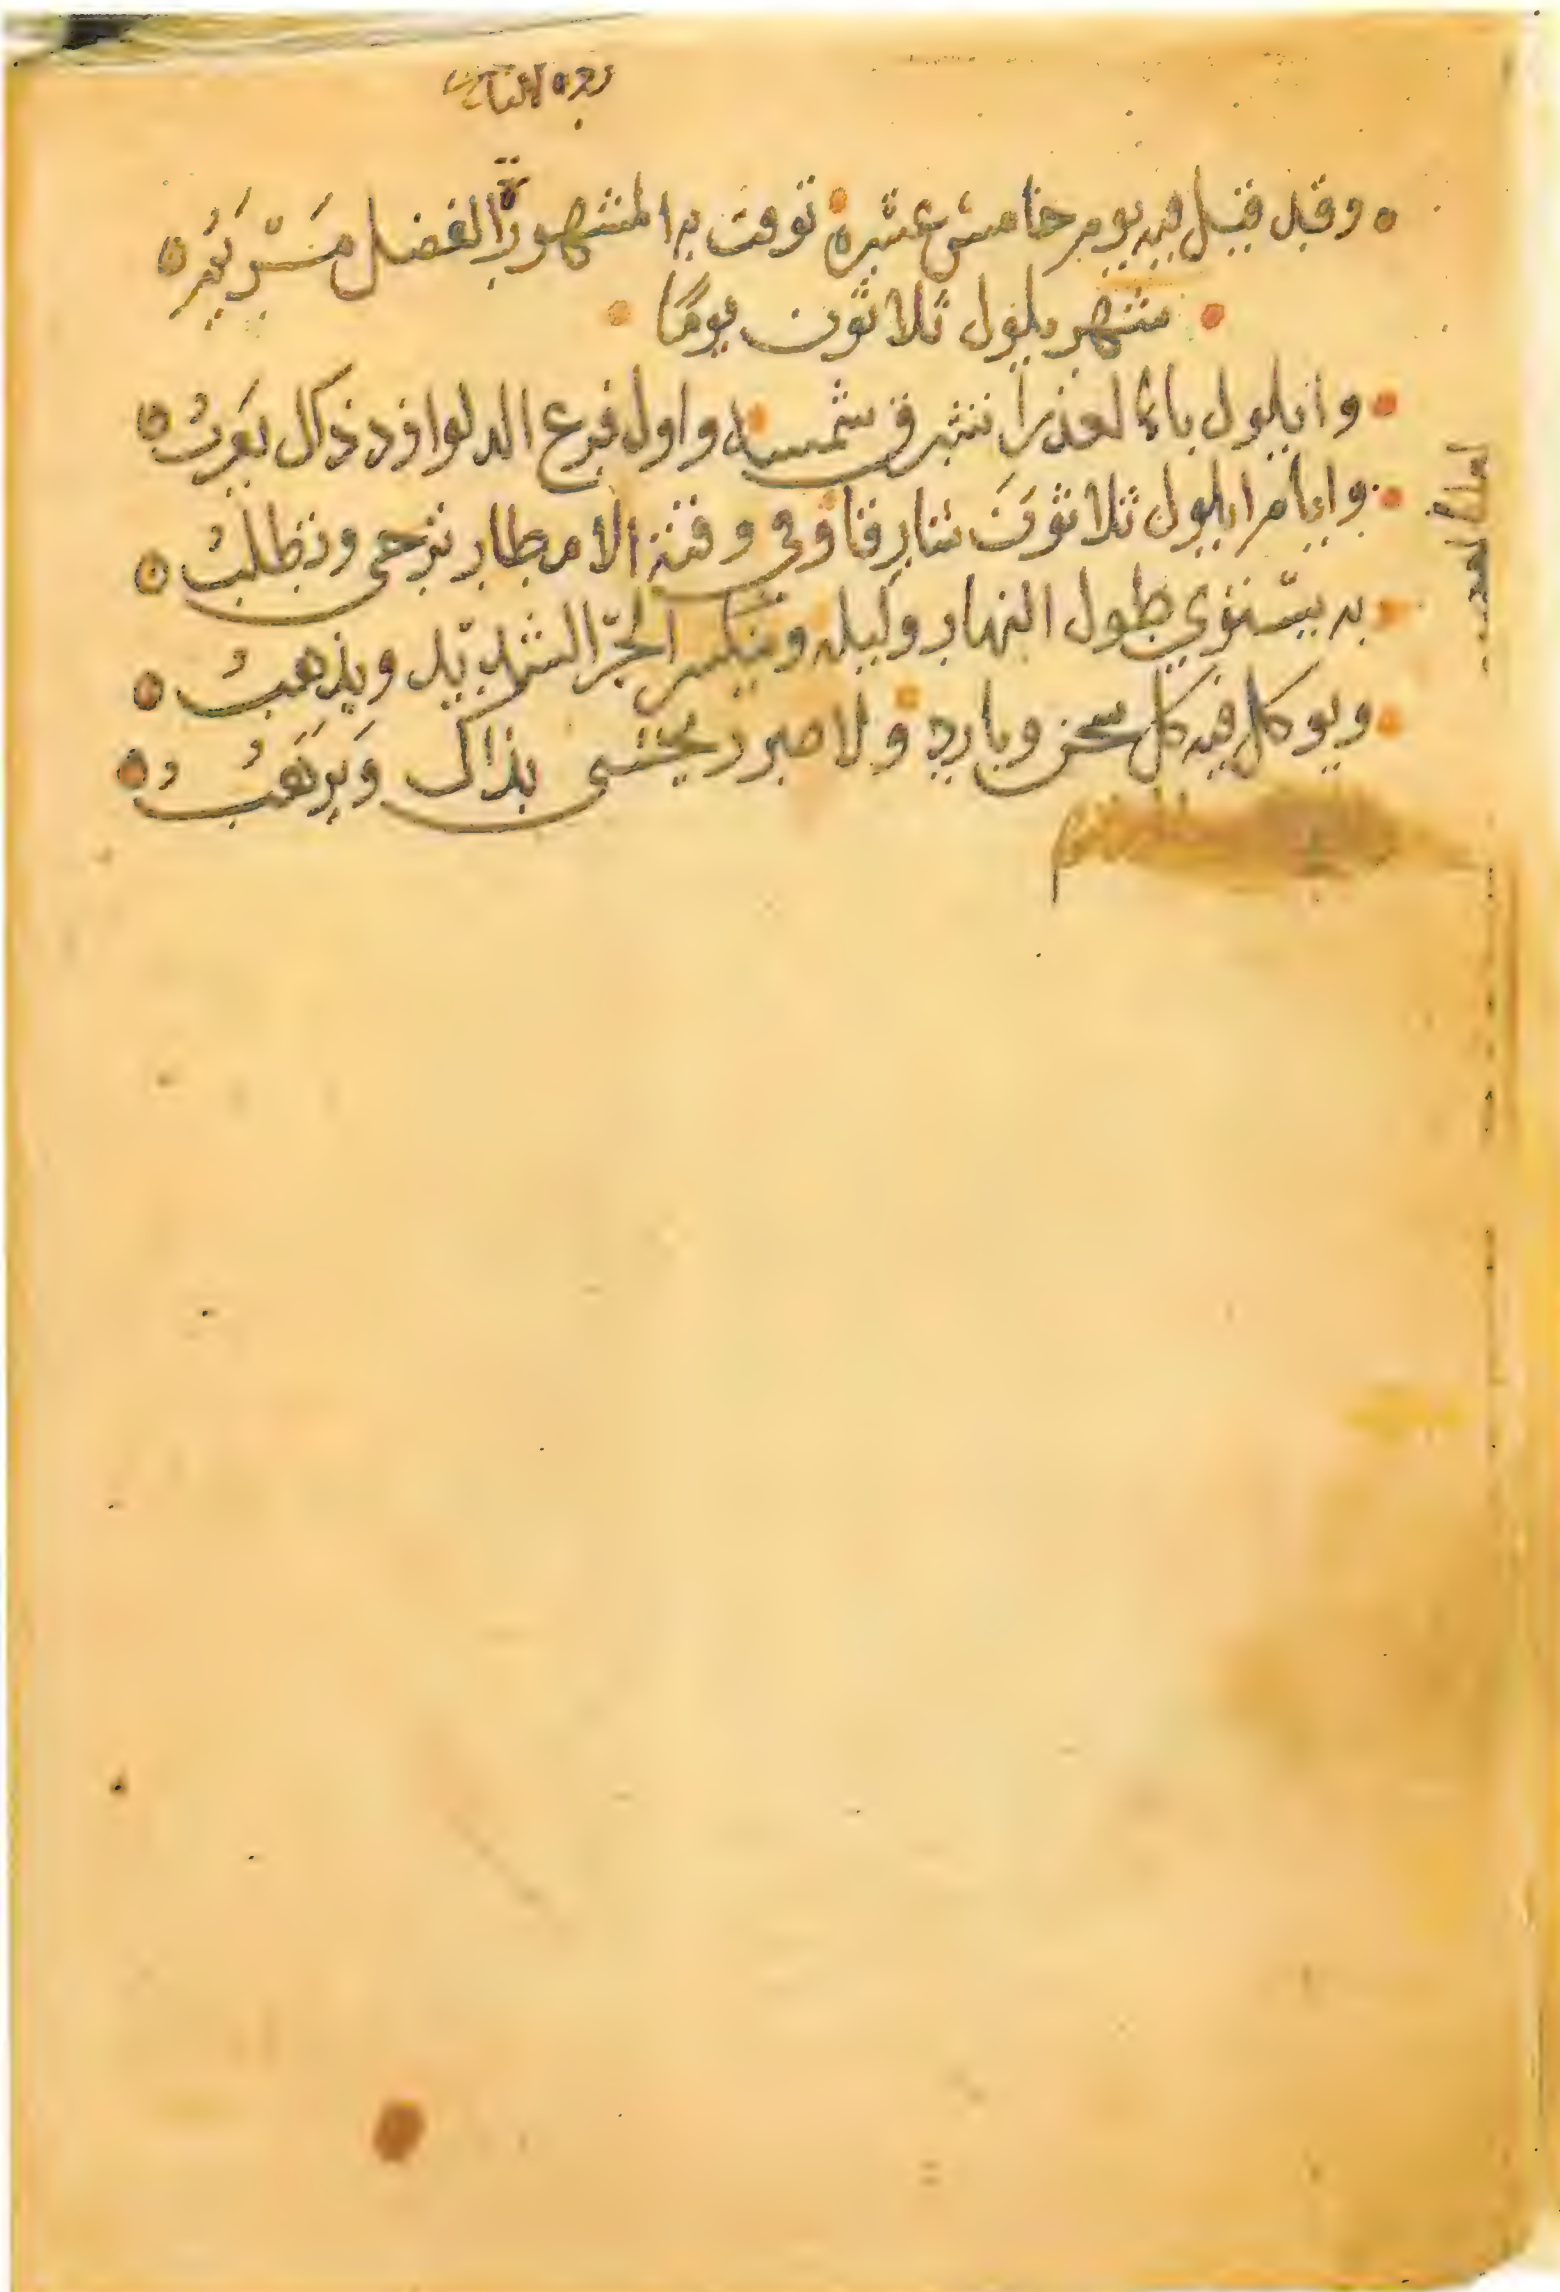 وقد قيل فيه يوم خامس عشره توفت به المشهورة الفضل مريم
شهر يلول ثلاثون يومًا
وايلول باء لعذرا تشرق شمسه واول فرع الدلو اذ ذكل يغربُ
وايام ايلول ثلاثون شارقا وفي وقته الامطار ترجى وتطلبُ
به يستوي طول النهار وليله وينكسر الحرّ الشديد ويذهبُ
ويوكل فيه كل سخن وبارد ولا صبر يختشى بذاك ويرتهبُ